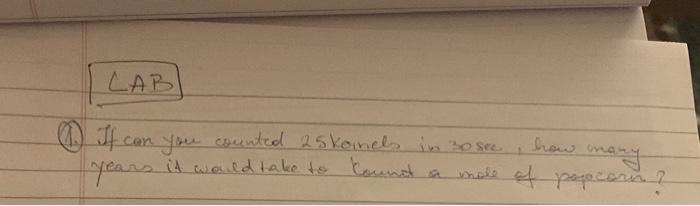 LAB
1. If can you counted 25 kornels in 30 sec, how many
years it would take to count a mole of popcorn?